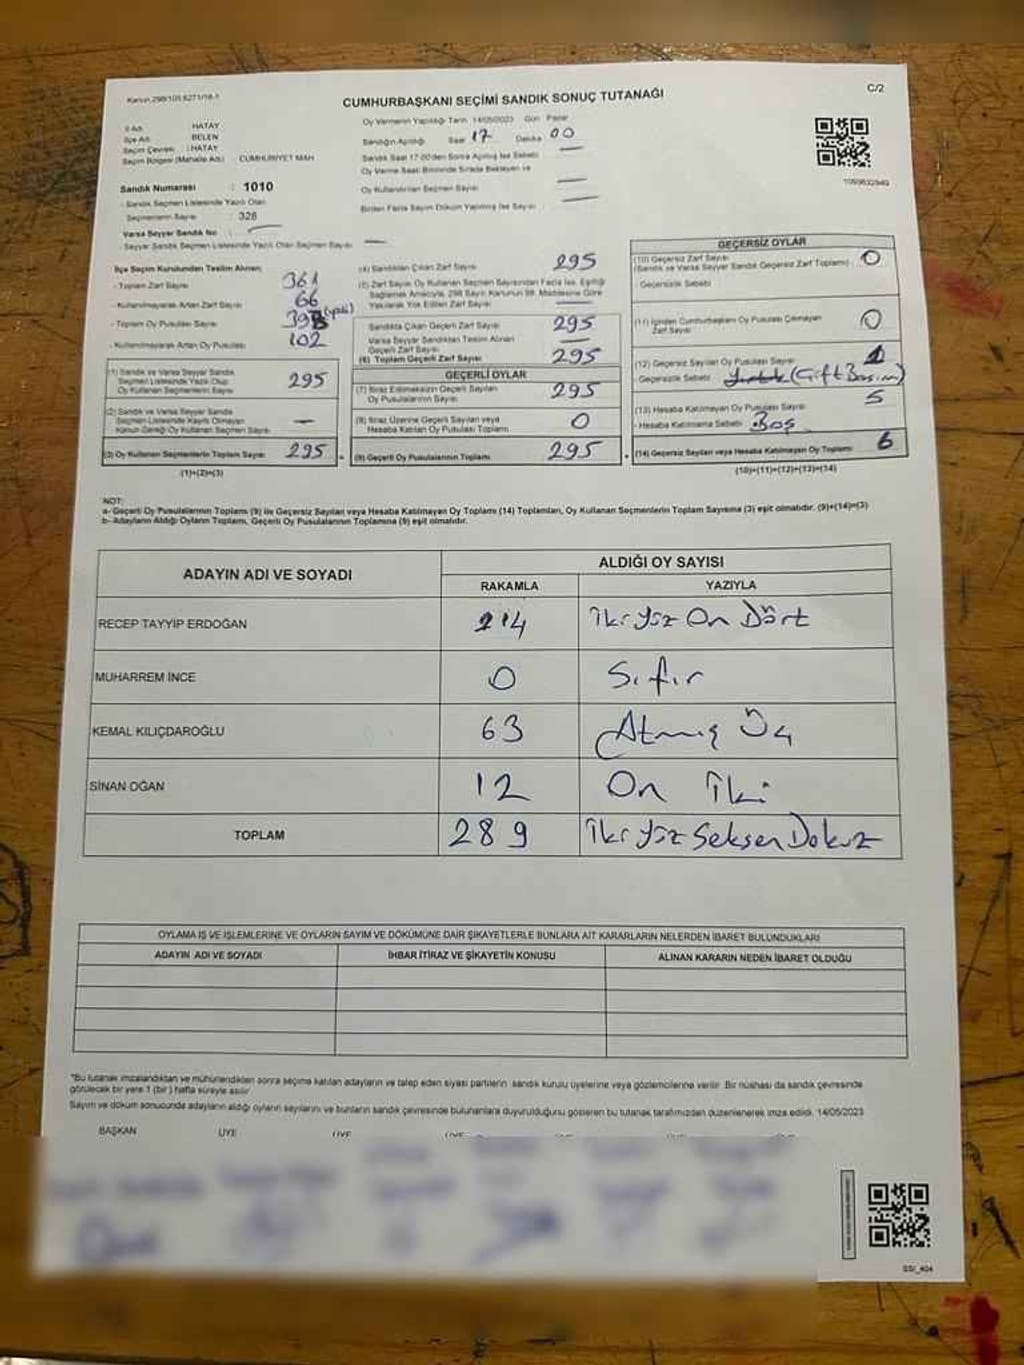 Kanun 298/105 6271/18-1
C/2
CUMHURBAŞKANI SEÇİMİ SANDIK SONUÇ TUTANAĞI
İl Adı HATAY
İlçe Adı BELEN
Seçim Çevresi : HATAY
Seçim Bölgesi (Mahalle Adı) CUMHURİYET MAH
Sandık Numarası : 1010
- Sandık Seçmen Listesinde Yazılı Olan
Seçmenlerin Sayısı : 328
Varsa Seyyar Sandık No :
- Seyyar Sandık Seçmen Listesinde Yazılı Olan Seçmen Sayısı —
Oy Vermenin Yapıldığı Tarih 14/05/2023 Gün Pazar
Sandığın Açıldığı Saat 17 Dakika 00
Sandık Saat 17.00'den Sonra Açılmış İse Sebebi —
Oy Verme Saati Bitiminde Sırada Bekleyen ve
Oy Kullandırılan Seçmen Sayısı —
Birden Fazla Sayım Döküm Yapılmış İse Sayısı —
İlçe Seçim Kurulundan Teslim Alınan;
- Toplam Zarf Sayısı 361
- Kullanılmayarak Artan Zarf Sayısı 66
- Toplam Oy Pusulası Sayısı
- Kullanılmayarak Artan Oy Pusulası 102
(1) Sandık ve Varsa Seyyar Sandık
Seçmen Listesinde Yazılı Olup
Oy Kullanan Seçmenlerin Sayısı 295
(2) Sandık ve Varsa Seyyar Sandık
Seçmen Listesinde Kayıtlı Olmayan
Kanun Gereği Oy Kullanan Seçmen Sayısı —
(3) Oy Kullanan Seçmenlerin Toplam Sayısı 295
(1)+(2)=(3)
(4) Sandıktan Çıkan Zarf Sayısı 295
(5) Zarf Sayısı Oy Kullanan Seçmen Sayısından Fazla İse, Eşitliği
Sağlamak Amacıyla, 298 Sayılı Kanunun 98. Maddesine Göre
Yakılarak Yok Edilen Zarf Sayısı —
Sandıkta Çıkan Geçerli Zarf Sayısı 295
Varsa Seyyar Sandıktan Teslim Alınan
Geçerli Zarf Sayısı —
(6) Toplam Geçerli Zarf Sayısı 295
GEÇERLİ OYLAR
(7) İtiraz Edilmeksizin Geçerli Sayılan
Oy Pusulalarının Sayısı 295
(8) İtiraz Üzerine Geçerli Sayılan veya
Hesaba Katılan Oy Pusulası Toplamı 0
(9) Geçerli Oy Pusulalarının Toplamı 295
GEÇERSİZ OYLAR
(10) Geçersiz Zarf Sayısı
(Sandık ve Varsa Seyyar Sandık Geçersiz Zarf Toplamı) 0
Geçersizlik Sebebi
(11) İçinden Cumhurbaşkanı Oy Pusulası Çıkmayan
Zarf Sayısı 0
(12) Geçersiz Sayılan Oy Pusulası Sayısı 1
- Geçersizlik Sebebi (Çift Basım)
(13) Hesaba Katılmayan Oy Pusulası Sayısı 5
- Hesaba Katılmama Sebebi Boş
(14) Geçersiz Sayılan veya Hesaba Katılmayan Oy Toplamı 6
(10)+(11)+(12)+(13)=(14)
NOT:
a- Geçerli Oy Pusulalarının Toplamı (9) ile Geçersiz Sayılan veya Hesaba Katılmayan Oy Toplamı (14) Toplamları, Oy Kullanan Seçmenlerin Toplam Sayısına (3) eşit olmalıdır. (9)+(14)=(3)
b- Adayların Aldığı Oyların Toplamı, Geçerli Oy Pusulalarının Toplamına (9) eşit olmalıdır.
ADAYIN ADI VE SOYADI ALDIĞI OY SAYISI
RAKAMLA YAZIYLA
RECEP TAYYİP ERDOĞAN 214 İki Yüz On Dört
MUHARREM İNCE 0 Sıfır
KEMAL KILIÇDAROĞLU 63 Atmış Üç
SİNAN OĞAN 12 On İki
TOPLAM 289 İki Yüz Seksen Dokuz
OYLAMA İŞ VE İŞLEMLERİNE VE OYLARIN SAYIM VE DÖKÜMÜNE DAİR ŞİKAYETLERLE BUNLARA AİT KARARLARIN NELERDEN İBARET BULUNDUKLARI
ADAYIN ADI VE SOYADI İHBAR İTİRAZ VE ŞİKAYETİN KONUSU ALINAN KARARIN NEDEN İBARET OLDUĞU
"Bu tutanak imzalandıktan ve mühürlendikten sonra seçime katılan adayların ve talep eden siyasi partilerin sandık kurulu üyelerine veya gözlemcilerine verilir. Bir nüshası da sandık çevresinde
görülecek bir yere 1 (bir) hafta süreyle asılır.
Sayım ve döküm sonucunda adayların aldığı oyların sayılarını ve bunların sandık çevresinde bulunanlara duyurulduğunu gösteren bu tutanak tarafımızdan düzenlenerek imza edildi. 14/05/2023
BAŞKAN ÜYE ÜYE ÜYE